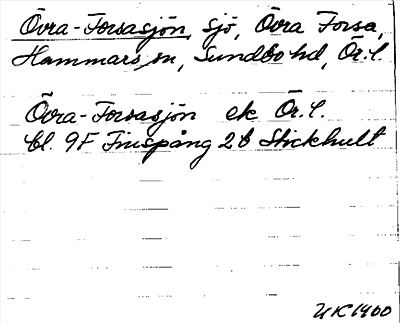 Övra-Forsasjön, sjö, Övra Forsa,
Hammars sn, Sundbo hd, Ör. l.
Övra-Forsasjön ek Ör. l.
bl. 9F Finspång 2b Stickhult
UK 1960